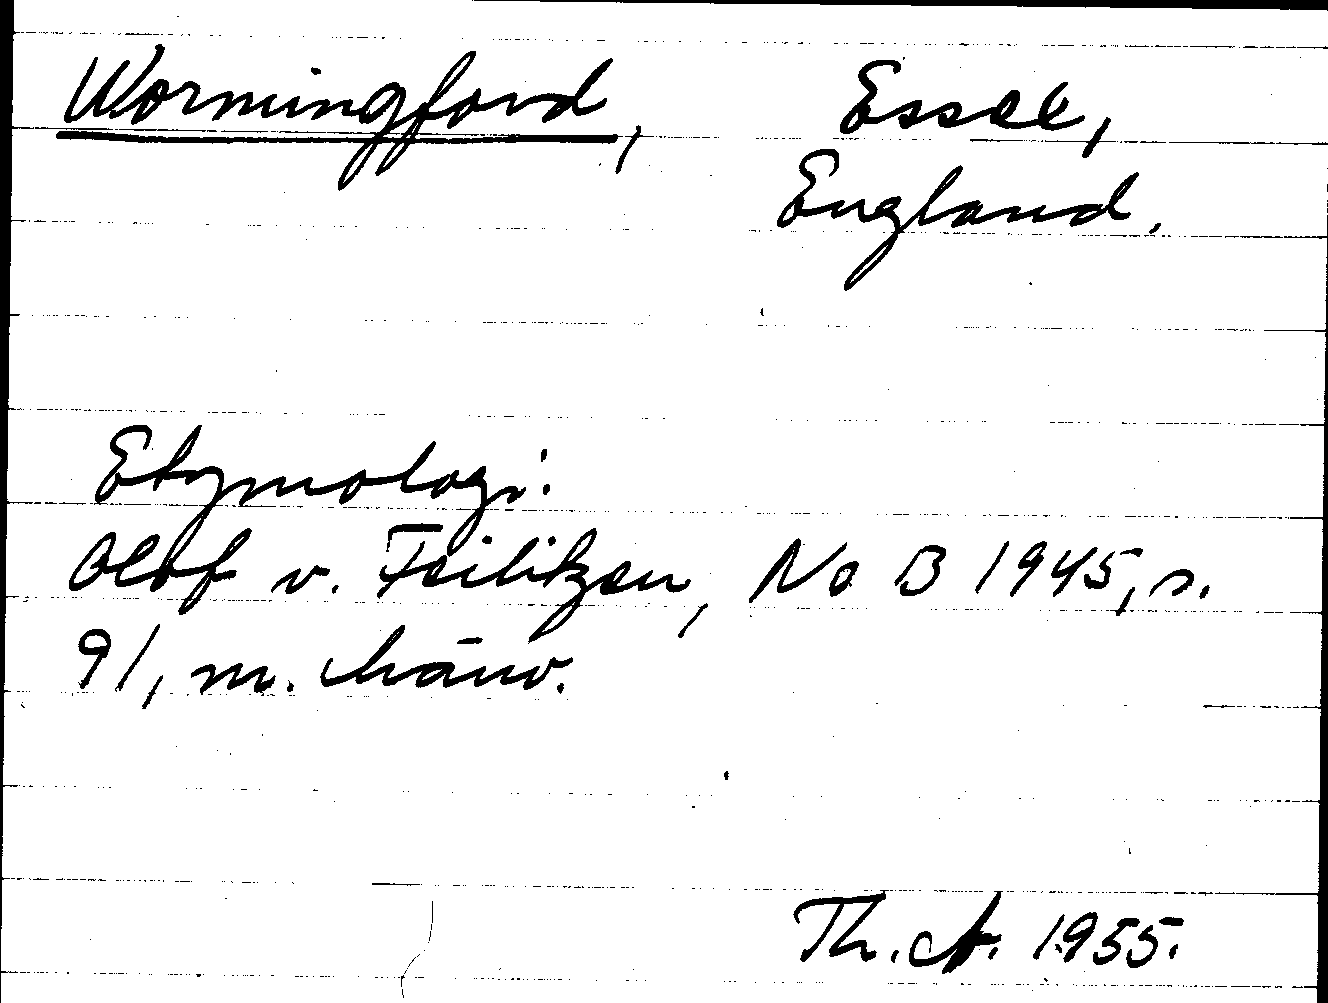 Wormingford, Essex,
England.
Etymologi:
Olof v. Feilitzen, NoB 1945, s.
91, m. hänv.
Th. A. 1955.